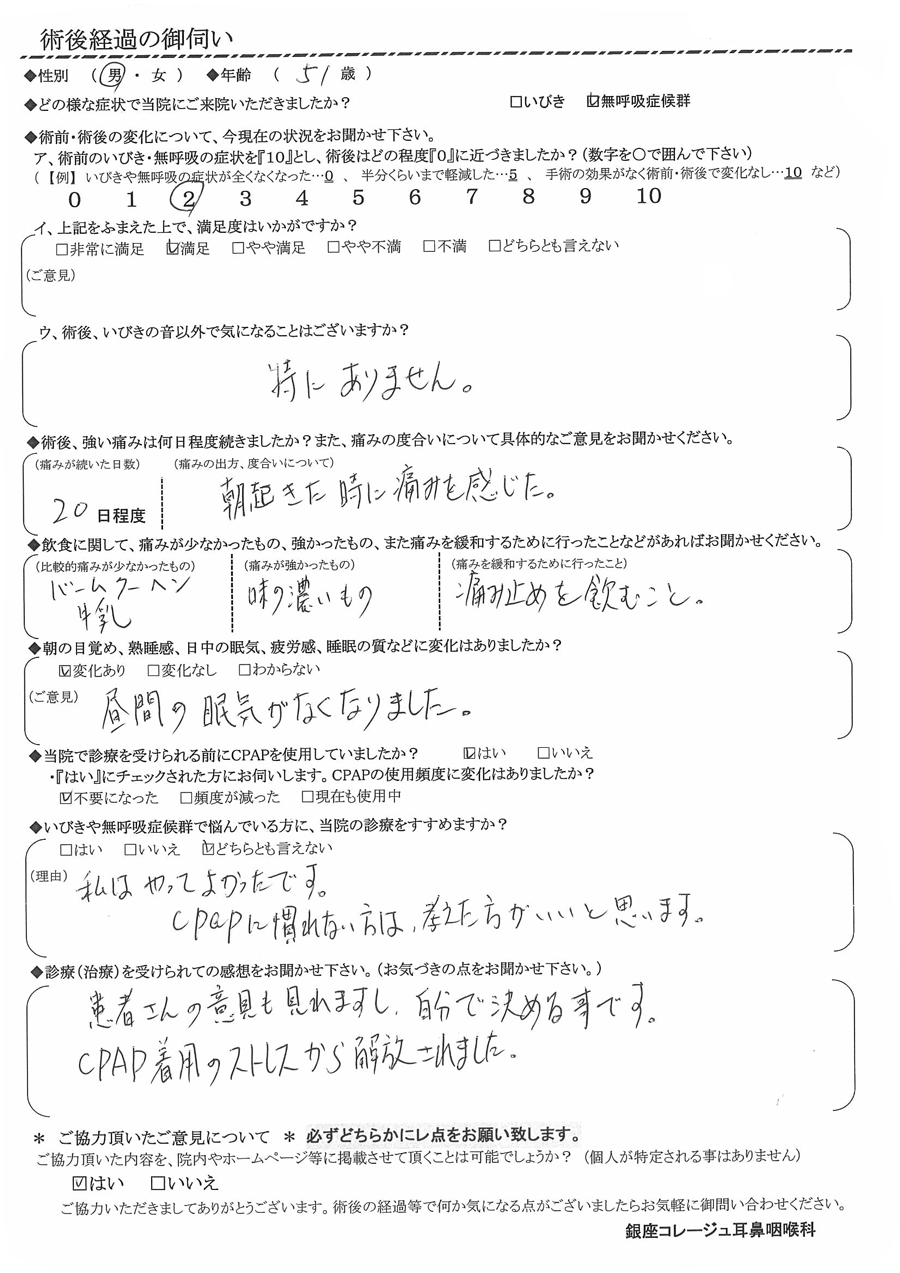 術後経過の御伺い
◆性別 (男・女) ◆年齢 (51歳)
◆どの様な症状で当院にご来院いただきましたか? □いびき ☑無呼吸症候群
◆術前・術後の変化について、今現在の状況をお聞かせ下さい。
ア、術前のいびき・無呼吸の症状を『10』とし、術後はどの程度『0』に近づきましたか?(数字を〇で囲んで下さい)
(【例】いびきや無呼吸の症状が全くなくなった…0 、 半分くらいまで軽減した…5 、 手術の効果がなく術前・術後で変化なし…10 など)
0 1 2 3 4 5 6 7 8 9 10
イ、上記をふまえた上で、満足度はいかがですか?
□非常に満足 ☑満足 □やや満足 □やや不満 □不満 □どちらとも言えない
(ご意見)
ウ、術後、いびきの音以外で気になることはございますか?
特にありません。
◆術後、強い痛みは何日程度続きましたか?また、痛みの度合いについて具体的なご意見をお聞かせください。
(痛みが続いた日数) (痛みの出方、度合いについて)
20日程度 朝起きた時に痛みを感じた。
◆飲食に関して、痛みが少なかったもの、強かったもの、また痛みを緩和するために行ったことなどがあればお聞かせください。
(比較的痛みが少なかったもの) (痛みが強かったもの) (痛みを緩和するために行ったこと)
バームクーヘン 味の濃いもの 痛み止めを飲むこと。
牛乳
◆朝の目覚め、熟睡感、日中の眠気、疲労感、睡眠の質などに変化はありましたか?
☑変化あり □変化なし □わからない
(ご意見) 昼間の眠気がなくなりました。
◆当院で診療を受けられる前にCPAPを使用していましたか? ☑はい □いいえ
・『はい』にチェックされた方にお伺いします。CPAPの使用頻度に変化はありましたか?
☑不要になった □頻度が減った □現在も使用中
◆いびきや無呼吸症候群で悩んでいる方に、当院の診療をすすめますか?
□はい □いいえ ☑どちらとも言えない
(理由) 私はやってよかったです。
CPAPに慣れない方は、考えた方がいいと思います。
◆診療(治療)を受けられての感想をお聞かせ下さい。(お気づきの点をお聞かせ下さい。)
患者さんの意見も見れますし、自分で決める事です。
CPAP着用のストレスから解放されました。
＊ ご協力頂いたご意見について ＊ 必ずどちらかにレ点をお願い致します。
ご協力頂いた内容を、院内やホームページ等に掲載させて頂くことは可能でしょうか? (個人が特定される事はありません)
☑はい □いいえ
ご協力いただきましてありがとうございます。術後の経過等で何か気になる点がございましたらお気軽に御問い合わせください。
銀座コレージュ耳鼻咽喉科